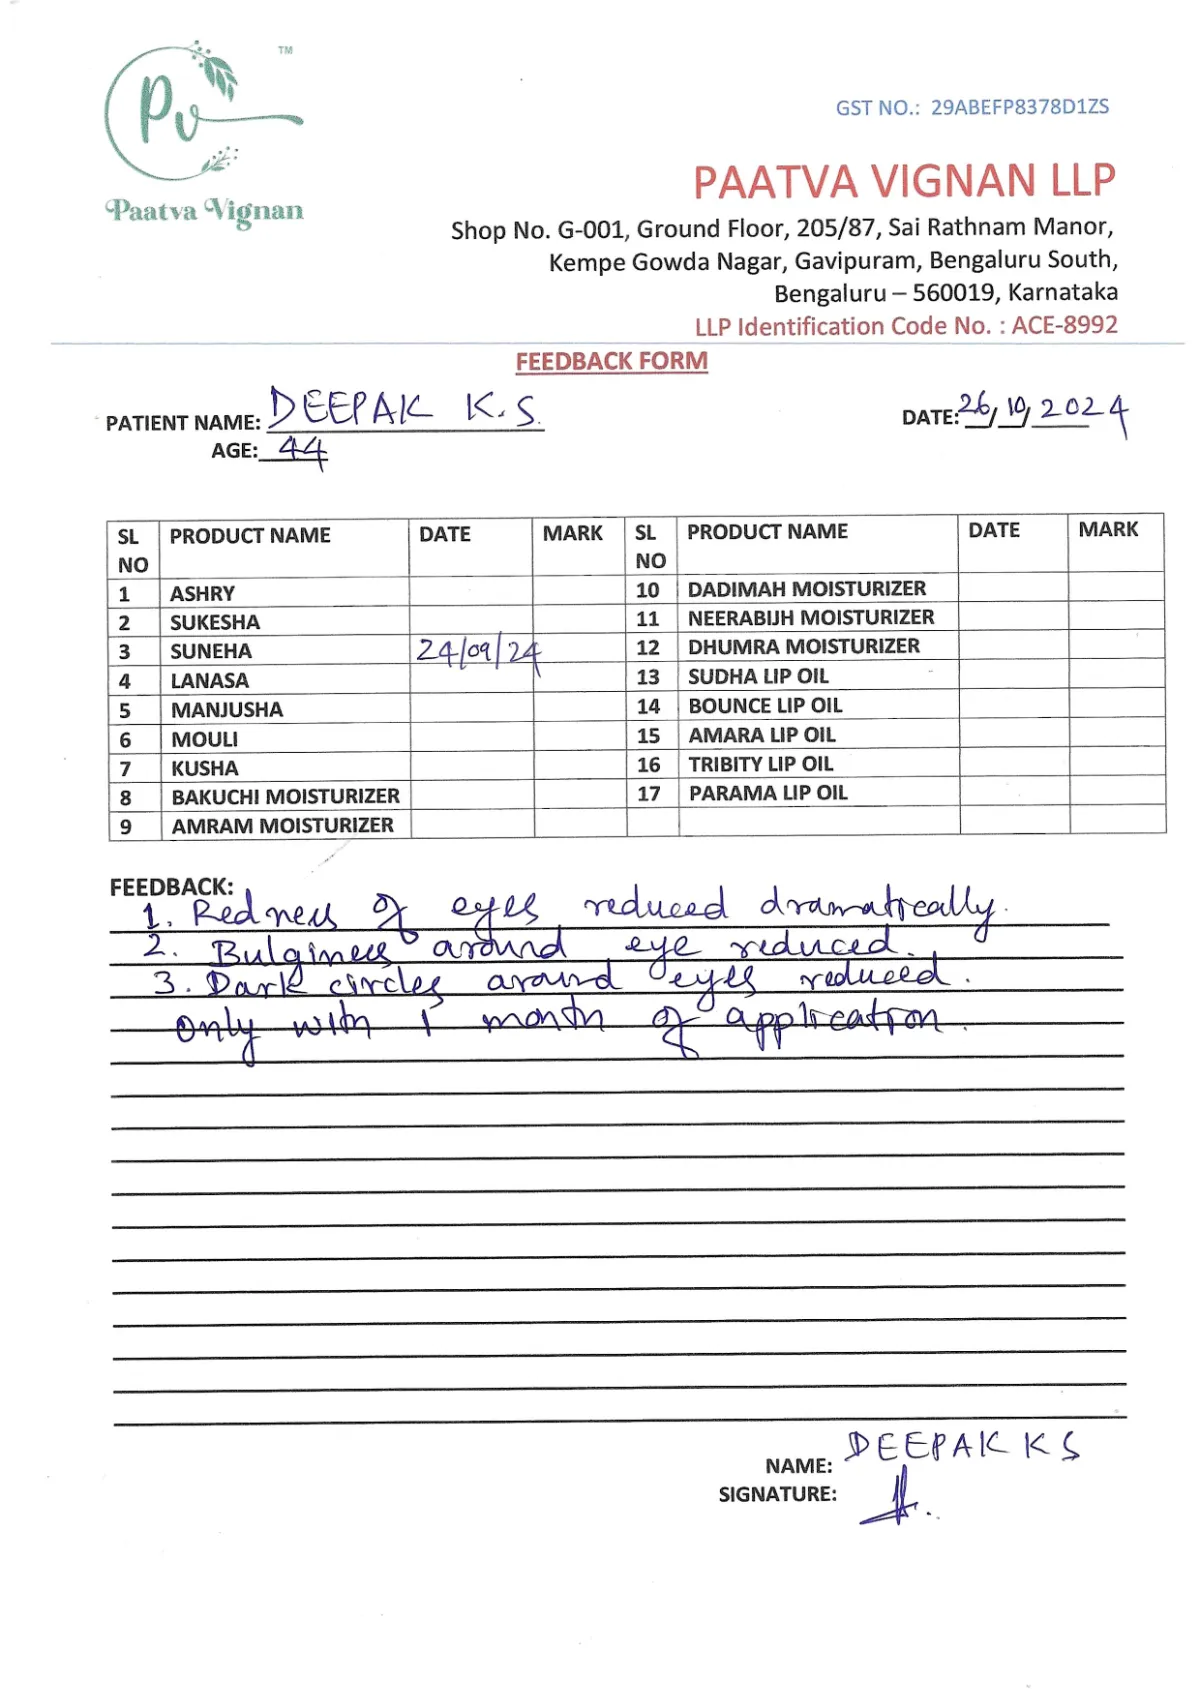 TM
Pv
Paatva Vignan
GST NO.: 29ABEFP8378D1ZS
PAATVA VIGNAN LLP
Shop No. G-001, Ground Floor, 205/87, Sai Rathnam Manor,
Kempe Gowda Nagar, Gavipuram, Bengaluru South,
Bengaluru – 560019, Karnataka
LLP Identification Code No. : ACE-8992
FEEDBACK FORM
PATIENT NAME: DEEPAK K.S. DATE: 26/10/2024
AGE: 44
SL NO PRODUCT NAME DATE MARK SL NO PRODUCT NAME DATE MARK
1 ASHRY 10 DADIMAH MOISTURIZER
2 SUKESHA 11 NEERABIJH MOISTURIZER
3 SUNEHA 24/09/24 12 DHUMRA MOISTURIZER
4 LANASA 13 SUDHA LIP OIL
5 MANJUSHA 14 BOUNCE LIP OIL
6 MOULI 15 AMARA LIP OIL
7 KUSHA 16 TRIBITY LIP OIL
8 BAKUCHI MOISTURIZER 17 PARAMA LIP OIL
9 AMRAM MOISTURIZER
FEEDBACK:
1. Redness of eyes reduced dramatically.
2. Bulginess around eye reduced.
3. Dark circles around eyes reduced.
only with 1 month of application.
NAME: DEEPAK K S
SIGNATURE: